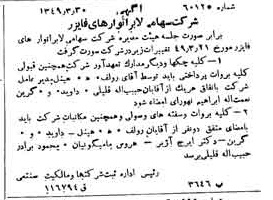 شماره ۶۰۱۲ آگهی ۱۳۴۹/۳/۳۰
شرکت سهامی لابراتوارهای فایزر
برابر صورت جلسه هیئت مدیره شرکت سهامی لابراتوار های
فایزر مورخ ۴۹/۳/۲۱ تغییرات زیر در شرکت صورت گرفت
۱ - کلیه چکها و دیگر مدارک تعهدآور شرکت همچنین قبولی
کلیه بروات پرداختی باید توسط آقای رولف هینل مدیر عامل
شرکت باتفاق هریک از آقایان حبیب اله قلیلی داوید و گرین
نعمت اله ابراهیم نهورای امضاء شود
۲ - کلیه بروات و سفته های وصولی و همچنین مکاتبات شرکت باید
بامضای متفق دو نفر از آقایان رولف هینل داوید و
گرین دکتر ایرج آژیر - هروس مامیکونیان محمود برادر
حبیب اله قلیلی برسد
رئیس اداره ثبت شرکتها و مالکیت صنعتی
ب ۳۶۴۶ ق ۱۱۶۷۹۴